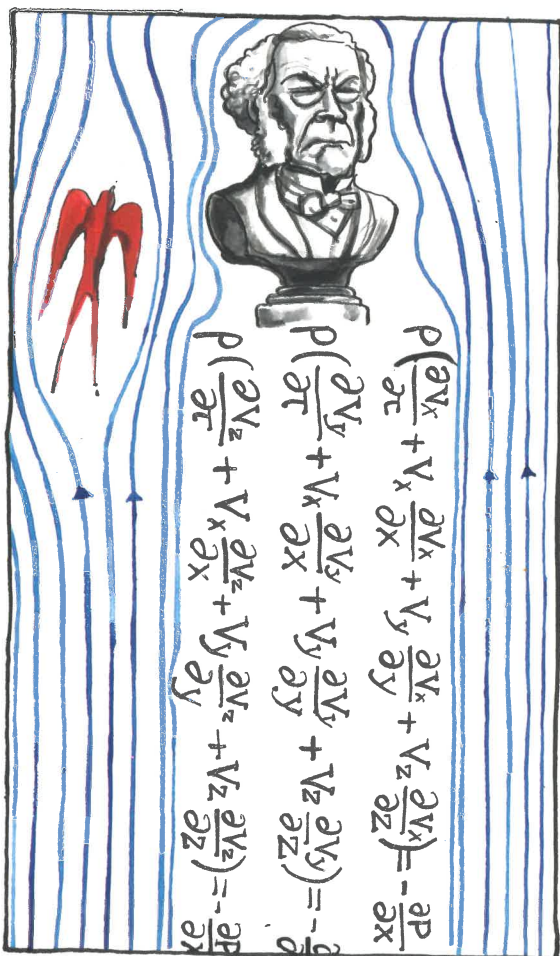 ρ(∂Vx/∂τ + Vx ∂Vx/∂x + Vy ∂Vx/∂y + Vz ∂Vx/∂z) = -∂P/∂x
ρ(∂Vy/∂τ + Vx ∂Vy/∂x + Vy ∂Vy/∂y + Vz ∂Vy/∂z) = -
ρ(∂Vz/∂τ + Vx ∂Vz/∂x + Vy ∂Vz/∂y + Vz ∂Vz/∂z) = -∂P/∂x